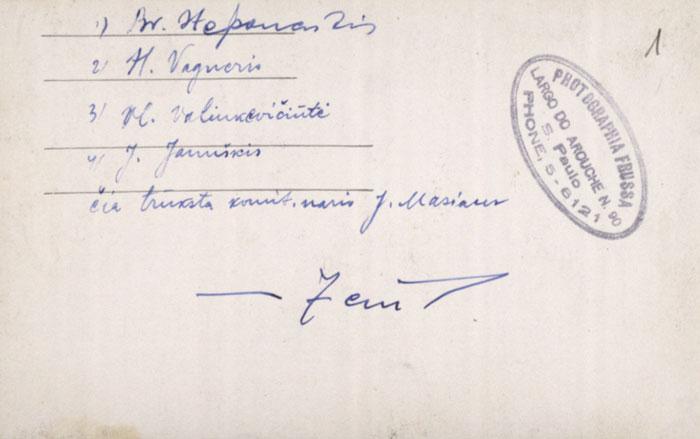 1) Br. Steponaitis
2) H. Vagneris
3) Vl. Valinkevičiūtė
4) J. Januškis
čia trūksta komit. naris J. Masiaus
1
PHOTOGRAPHIA FRUSSA
LARGO DO AROUCHE N. 90
S. Paulo
PHONE, 5-6121